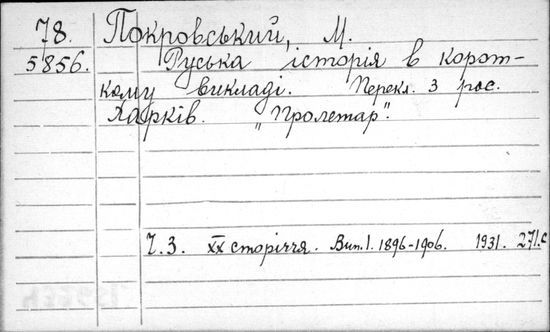 78. Покровський, М.
5856. Руська історія в корот-
кому викладі. Перекл. з рос.
Харків. „Пролетар".
Ч.3. XX сторіччя. Вип. 1. 1896-1906. 1931. 271.с